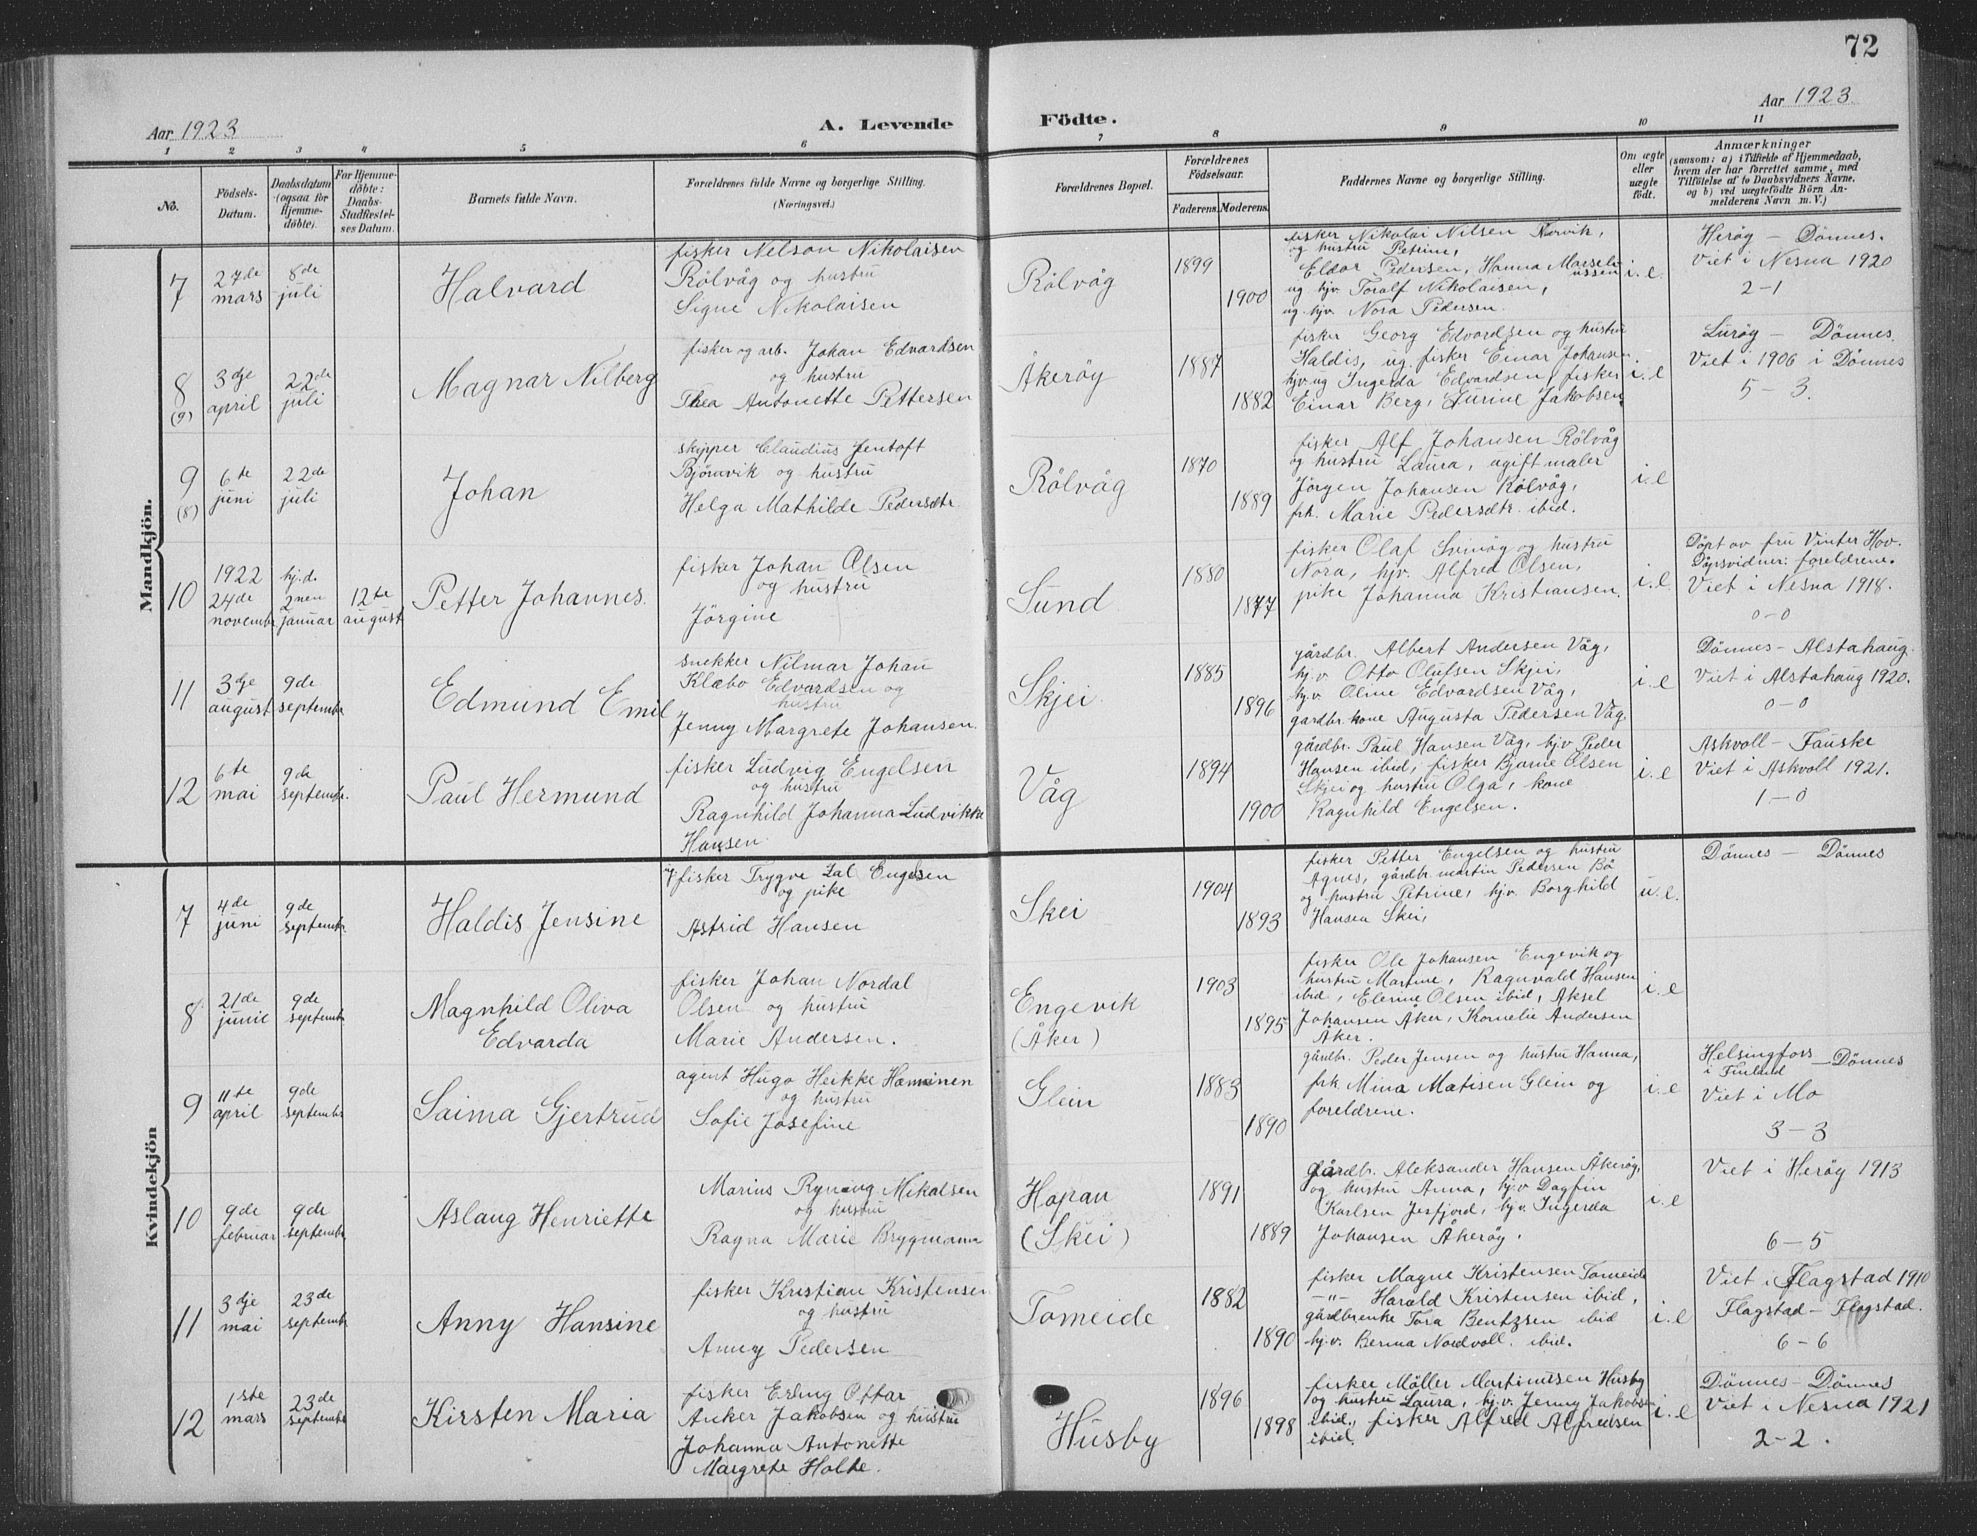 72
Aar 1923
A. Levende Födte.
Aar 1923
1 2 3 4 5 6 7 8 9 10 11
No.
Födsels-
Datum.
Daabsdatum
(ogsaa for
Hjemme-
döbte).
For Hjemme-
döbte:
Daabs-
Stadfæstel-
ses Datum.
Barnets fulde Navn.
Forældrenes fulde Navne og borgerlige Stilling.
(Næringsvei.)
Forældrenes Bopæl.
Forældrenes
Födselsaar.
Faderens. Moderens.
Faddernes Navne og borgerlige Stilling.
Om ægte
eller
uægte
født.
Anmærkninger
(saasom: a) i Tilfælde af Hjemmedaab,
hvem der har forrettet samme, med
Tilföielse af to Daabsvidners Navne,
og b) ved uægtefödte Börn An-
melderens Navn m. V.)
Mandkjön.
7
27de
mars
8de
juli
Halvard
fisker Nelson Nikolaisen
Rölvåg og hustru
Signe Nikolaisen
Rölvåg
1899
1900
fisker Nikolai Nilsen Nørvik,
og hustru Petrine,
Eldor Pedersen, Hanna Marseli-
ussen
ug hjv. Toralf Nikolaisen,
ug. hjv. Nora Pedersen.
i. e.
Heröy – Dönnes.
Viet i Nesna 1920
2–1
8
(9)
3dje
april
22de
juli
Magnar Nilberg
fisker og arb. Johan Edvardsen
og hustru
Thea Antonette Pettersen
Åkeröy
1887
1882
fisker Georg Edvardsen og hustru
Haldis, ug. fisker Einar Johansen.
hjv. ug Ingerda Edvardsen, fisker
Einar Berg, Jurine Jakobsen,
i. e
Luröy – Dönnes.
Viet i 1906 i Dönnes
5–3.
9
(8)
6te
juni
22de
juli
Johan
skipper Claudius Jentoft
Björnvik og hustru
Helga Mathilde Pedersdtr.
Rölvåg
1870
1889
fisker Alf Johansen Rölvåg
og hustru Laura, ugift maler
Jörgen Johansen Rölvåg,
frk. Marie Pedersdtr. ibid.
i. e
10
1922
24de
novembr
hj.d.
2nen
januar
12te
august
Petter Johannes.
fisker Johan Olsen
og hustru
Jörgine
Sund
1880
1877
fisker Olaf Svinöy og hustru
Nora, hjv. Alfred Olsen,
pike Johanna Kristiansen.
i. e
Döpt av fru Vinter Hov.
Döpsvidner: foreldrene.
Viet i Nesna 1918.
0–0
11
3dje
august
9de
septembr
Edmund Emil
snekker Nilmar Johan
Klæbo Edvardsen og
hustru
Jenny Margrete Johansen.
Skjei
1885
1896
gårdbr. Albert Andersen Våg,
hj.v. Otto Olufsen Skjei,
hj.v. Oline Edvardsen Våg,
gardbr. kone Augusta Pedersen Våg
i. e
Dönnes – Alstahaug.
Viet i Alstahaug 1920.
0–0
12
6te
mai
9de
septembr.
Paul Hermund
fisker Ludvig Engelsen
og hustru
Ragnhild Johanna Ludvikke
Hansen
Våg
1894
1900
gårdbr. Paul Hansen Våg, hj.v Peder
Hansen ibid, fisker Bjarne Olsen
Skjei og hustru Olga, kone
Ragnhild Engelsen.
i. e
Askvoll – Fauske
Viet i Askvoll 1921.
1–0
Kvindekjön
7
4de
juni
9de
septembr.
Haldis Jensine
fisker Trygve Dal Engelsen
og pike
Astrid Hansen
Skei
1904
1893
fisker Petter Engelsen og hustru
Agnes, gårdbr. Martin Pedersen Bö
og hustru Petrine, hj.v. Borghild
Hansen Skei,
u. e.
Dönnes – Dönnes
8
21de
junie
9de
septembr
Magnhild Oliva
Edvarda
fisker Johan Nordal
Olsen og hustru
Marie Andersen.
Engevik
(Åker)
1903
1895
fisker Ole Johansen Engevik og
hustru Martine, Ragnvald Hansen
ibid, Elerine Olsen ibid, Aksel
Johansen Åker, Kornelie Andersen
Åker.
i. e
9
11te
april
9de
septembr
Saima Gjertrud
agent Hugo Heikke Hanninen
og hustru
Sofie Josefine
Glein
1883
1890
gårdbr. Peder Jensen og hustru Hanna,
frk. Mina Matisen Glein og
foreldrene.
i. e
Helsingfors – Dönnes
i Finland
Viet i Mo
3–3
10
9de
februar
9de
septembr
Aslaug Henriette
Marius Rynaug Nikalsen
og hustru
Ragna Marie Brygmann
Hopan
(Skei)
1891
1889
gårdbr. Aleksander Hansen Åkeröy,
og hustru Anna, hj.v Dagfin
Karlsen Jesfjord, hj.v. Ingerda
Johansen Åkeröy.
i. e
Viet i Heröy 1913
6–5
11
3dje
mai
23de
septembr
Anny Hansine
fisker Kristian Kristensen
og hustru
Anny Pedersen
Tomeide
1882
1890
fisker Magne Kristensen Tomeide
–"– Harald Kristensen ibid,
gårdbrenke Tora Bentzsen ibid
hj.v. Berina Nordvoll. ibid.
i. e
Viet i Flagstad 1910
Flagstad – Flagstad.
6–6
12
1ste
mars
23de
septembr
Kirsten Maria
fisker Erling Ottar
Anker Jakobsen og hustru
Johanna Antonette
Margrete Holte.
Husby
1896
1898
fisker Möller Martinusen Husby
og hustru Laura, hj.v. Jenny Jakobsen
ibid., fisker Alfred Alfredsen
ibid.
i. e
Dönnes – Dönnes
Viet i Nesna 1921
2–2.